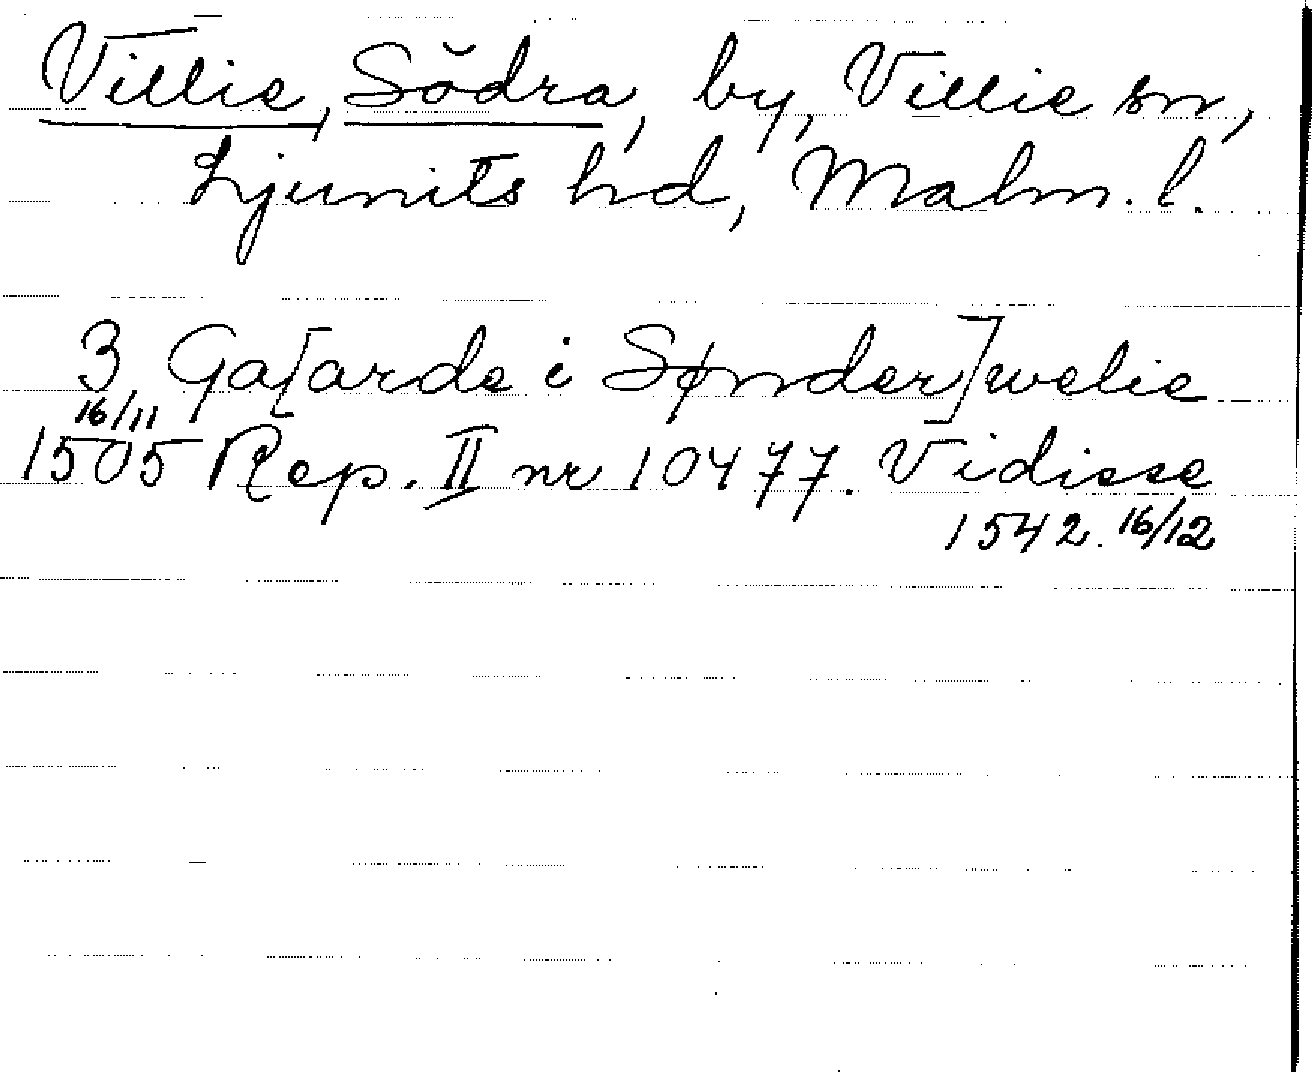 Villie, Södra, by, Villie sn,
Ljunits hd, Malm. l.
3 Ga[arde i Sønder]welie
16/11
1505 Rep. II nr 10477. Vidisse
1542. 16/12